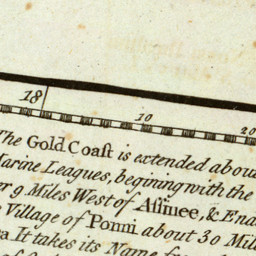 18
10 20
The Gold Coast is extended abou
Marine Leagues, begining with the
9 Miles West of Assinee, & End
Village of Ponni about 30 Mil
It takes its Name